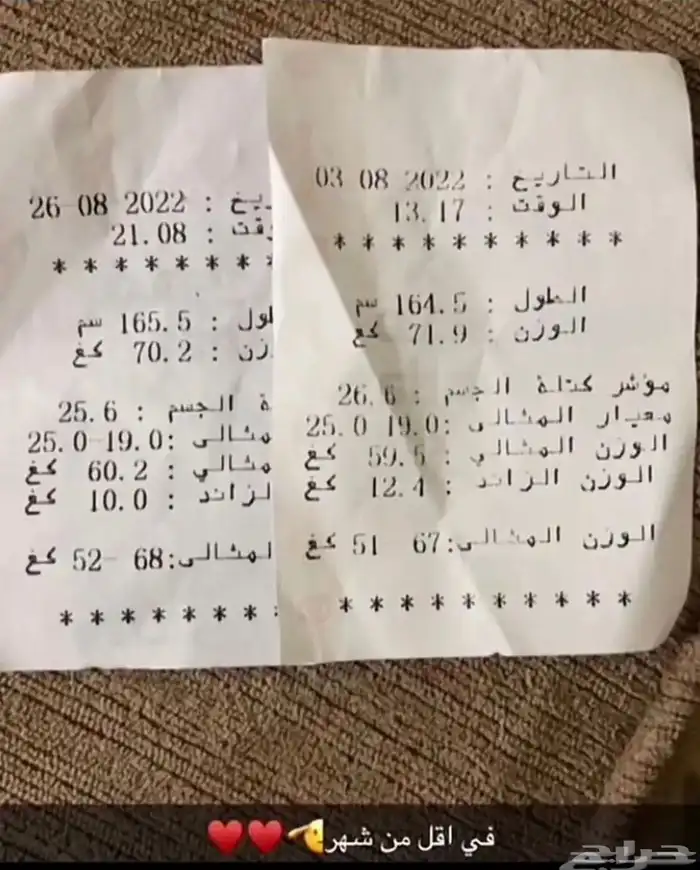 التاريخ : 2022 08 03
الوقت : 13.17
* * * * * * * * * *
الطول : 164.5 سم
الوزن : 71.9 كغ
مؤشر كتلة الجسم : 26.6
معيار المثالى :19.0 25.0
الوزن المثالي : 59.5 كغ
الوزن الزائد : 12.4 كغ
الوزن المثالى:67 51 كغ
* * * * * * * * * *
يخ : 2022 08-26
قت : 21.08
* * * * * * * *
لول : 165.5 سم
زن : 70.2 كغ
ة الجسم : 25.6
مثالى :19.0-25.0
مثالي : 60.2 كغ
لزائد : 10.0 كغ
لمثالى:68 -52 كغ
* * * * * * * *
في اقل من شهر🫡❤️❤️
حراج